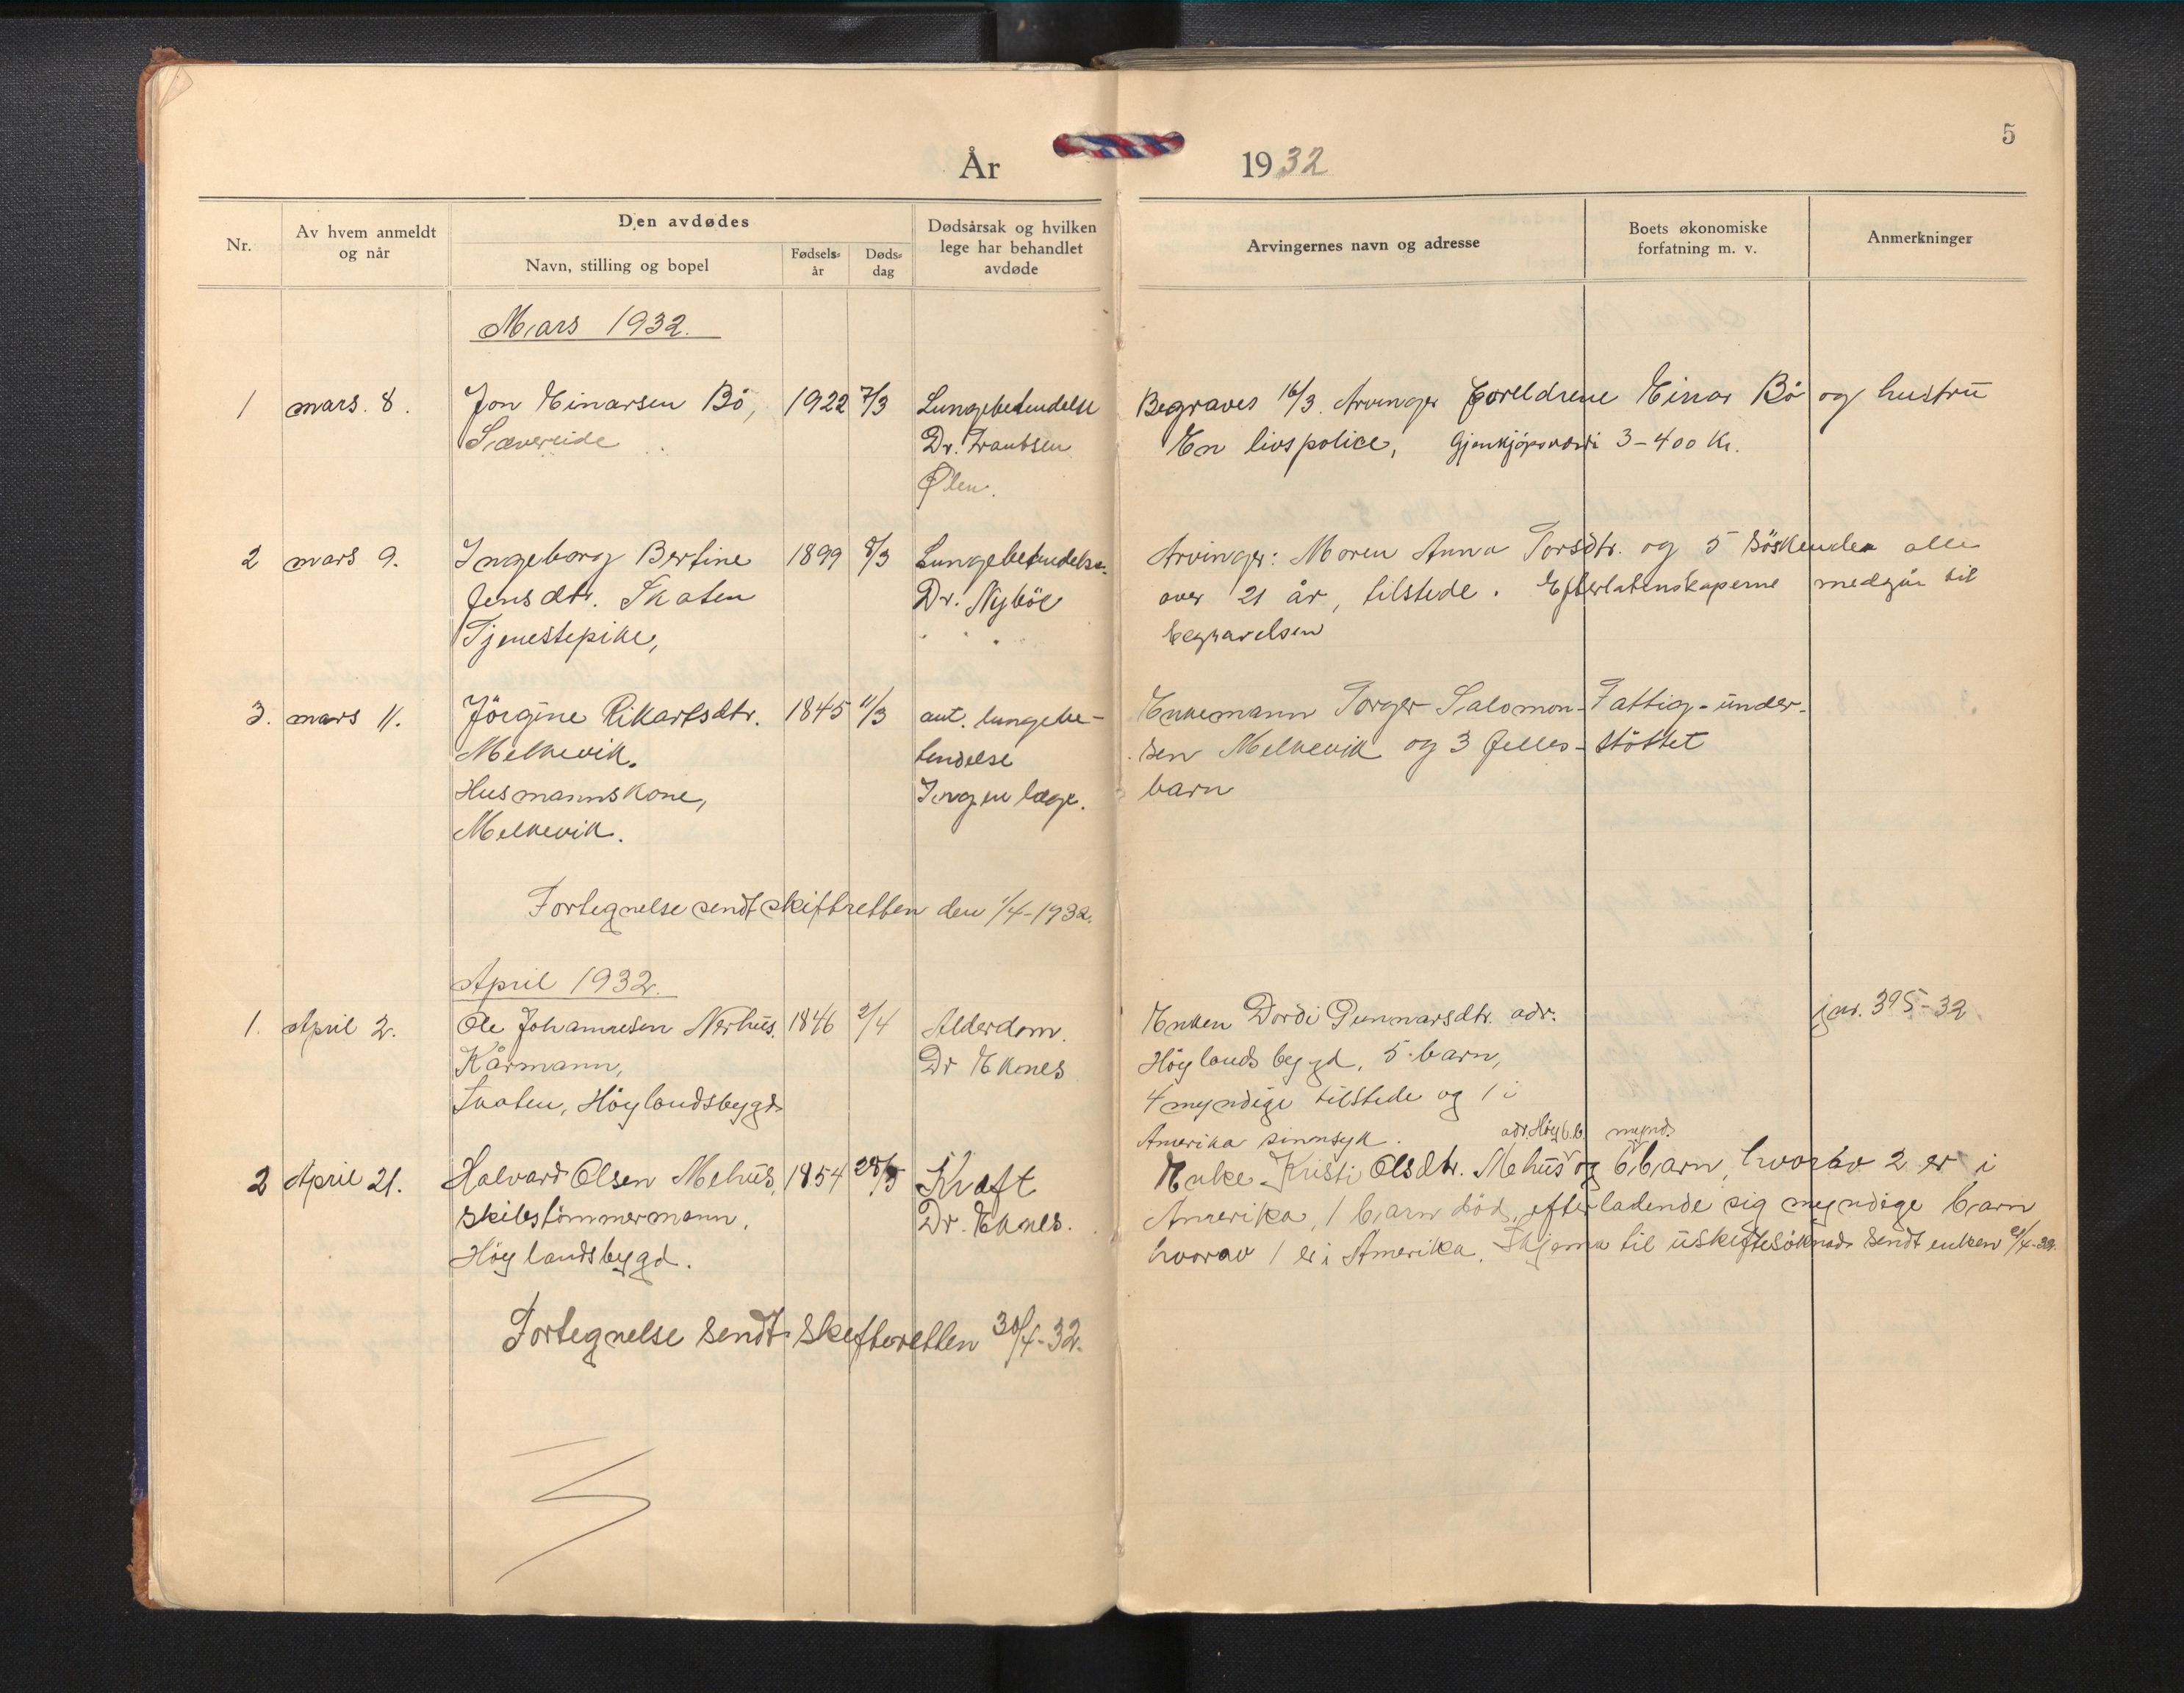 5
År 1932
Nr. Av hvem anmeldt og når Den avdødes Navn, stilling og bopel Fødselsår Dødsdag Dødsårsak og hvilken lege har behandlet avdøde Arvingernes navn og adresse Boets økonomiske forfatning m. v. Anmerkninger
Mars 1932.
1 mars. 8. Jon Einarsen Bö, 1922 7/3 Lungebetendelse Begraves 16/3. Arvinger Foreldrene Einar Bö og hustru
Sævereide Dr. En livspolice, Gjenkjöpsværdi 3-400 Kr.
Ølen.
2 mars 9. Ingeborg Bertine 1899 8/3 Lungebetendelse. Arvinger: Moren Anna Torsdtr. og 5 Söskender alle
Jensdtr. Skaten Dr. Nyböe over 21 år, tilstede. Efterlatenskaperne medgår til
Tjenestepike, begravelsen
3. mars 11. Jörgine Rikartsdtr. 1845 11/3 ant. lungebe- Enkemann Torger Salomon- Fattig-under-
Melkevik. tendelse sen Melkevik og 3 felles- stöttet
Husmannskone, Ingen læge. barn
Melkevik.
Fortegnelse sendt skifteretten den 1/4-1932.
April 1932.
1. April 2. Ole Johannesen Nerhus. 1846 2/4 Alderdom. Enken Dordi Gunnarsdtr. adr. jnr. 395-32
Kårmann, Dr Eknes Höylandsbygd, 5 barn,
Skaten, Höylandsbygd 4 myndige tilstede og 1 i
Amerika sinnsyk. adr Höyl.b. mynd.
2 April 21. Halvard Olsen Mehus, 1854 Kreft Enke Kristi Olsdtr. Mehus og 6 barn, hvorav 2 er i
Skibstömmermann, Dr. Eknes. Amerika, 1 barn död, efterladende sig myndige barn
Höylandsbygd. hvorav 1 er i Amerika. Skjema til uskiftesöknad sendt enken
Fortegnelse sendt Skifteretten 30/4-32.